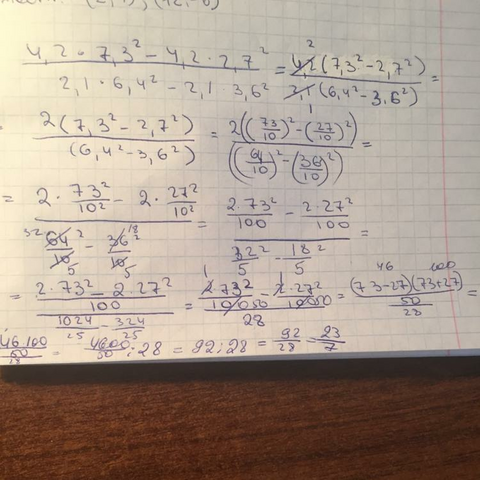 (4,2 · 7,3² − 4,2 · 2,7²) / (2,1 · 6,4² − 2,1 · 3,6²) = 4,2 2 (7,3² − 2,7²) / 2,1 1 (6,4² − 3,6²) =
2(7,3² − 2,7²) / (6,4² − 3,6²) = 2((73/10)² − (27/10)²) / ((64/10)² − (36/10)²) =
= (2 · 73²/10² − 2 · 27²/10²) / (32 64²/10 5 − 18 36²/10 5) = (2·73²/100 − 2·27²/100) / (32²/5 − 18²/5) =
= ((2·73² − 2·27²)/100) / (1024/25 − 324/25) = (2·73²/100 50 − 2·27²/100 50) / 28 = ((73−27) 46 (73+27) 100 / 50) / 28 =
(46·100/50)/28 = 4600/50 : 28 = 92 : 28 = 92/28 = 23/7